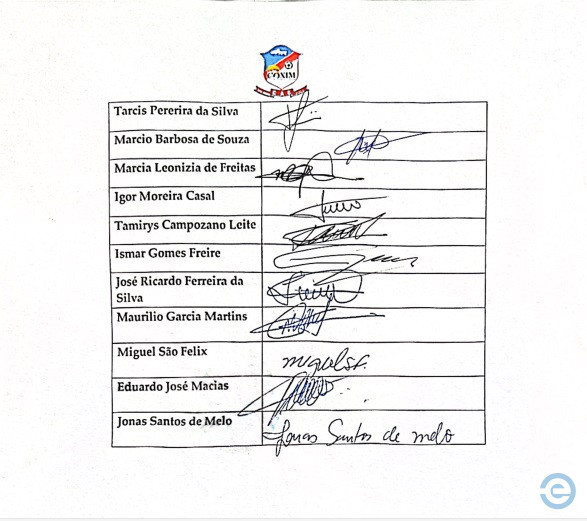 COXIM
Tarcis Pererira da Silva
Marcio Barbosa de Souza
Marcia Leonizia de Freitas
Igor Moreira Casal
Tamirys Campozano Leite
Ismar Gomes Freire
José Ricardo Ferreira da
Silva
Maurilio Garcia Martins
Miguel São Felix
Eduardo José Macias
Jonas Santos de Melo Jonas Santos de melo